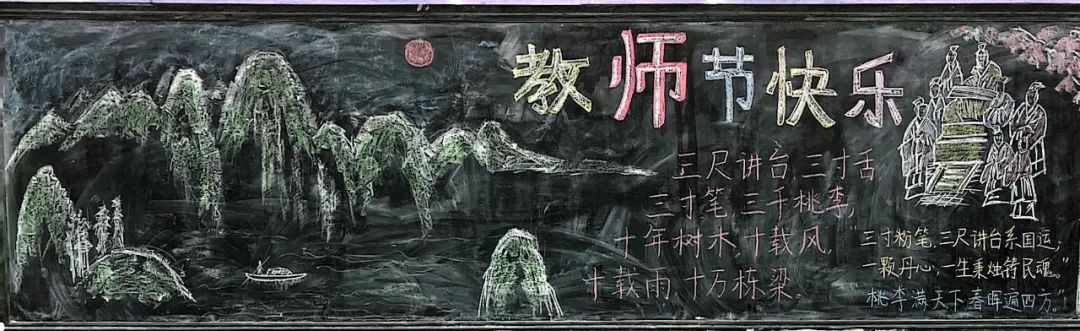 教师节快乐
三尺讲台,三寸舌
三寸笔,三千桃李,
十年树木,十载风
十载雨,十万栋梁。
"三寸粉笔,三尺讲台系国运,
一颗丹心,一生秉烛铸民魂。"
"桃李满天下,春晖遍四方。"